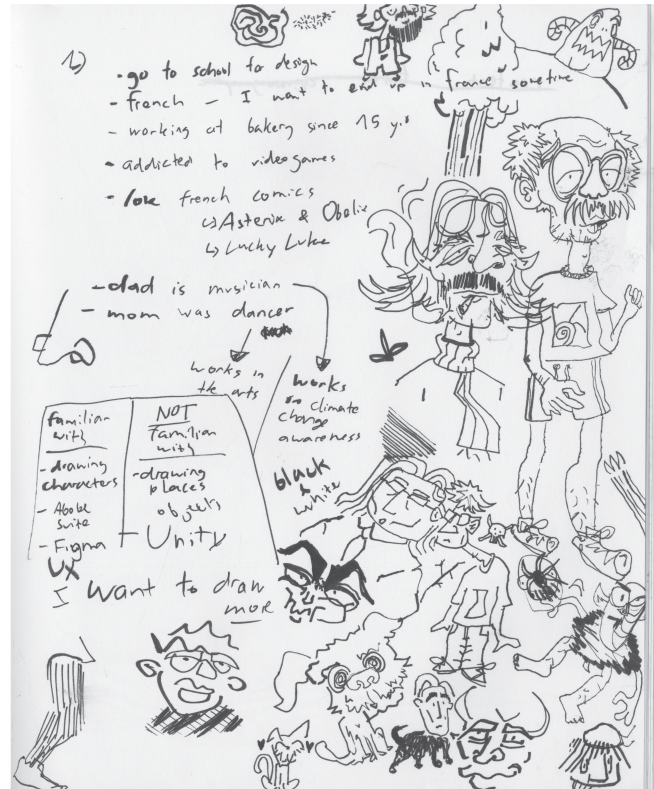 1)
- go to school for design
- french - I want to end up in france sometime
- working at bakery since 15 y.o
- addicted to videogames
- love french comics
↳ Asterix & Obelix
↳ Lucky Luke
- dad is musician
- mom was dancer
works in the arts
works on climate change awareness
familiar with
- drawing characters
- Adobe suite
- Figma
UX
NOT familiar with
- drawing places objects
- Unity
black & white
I want to draw more